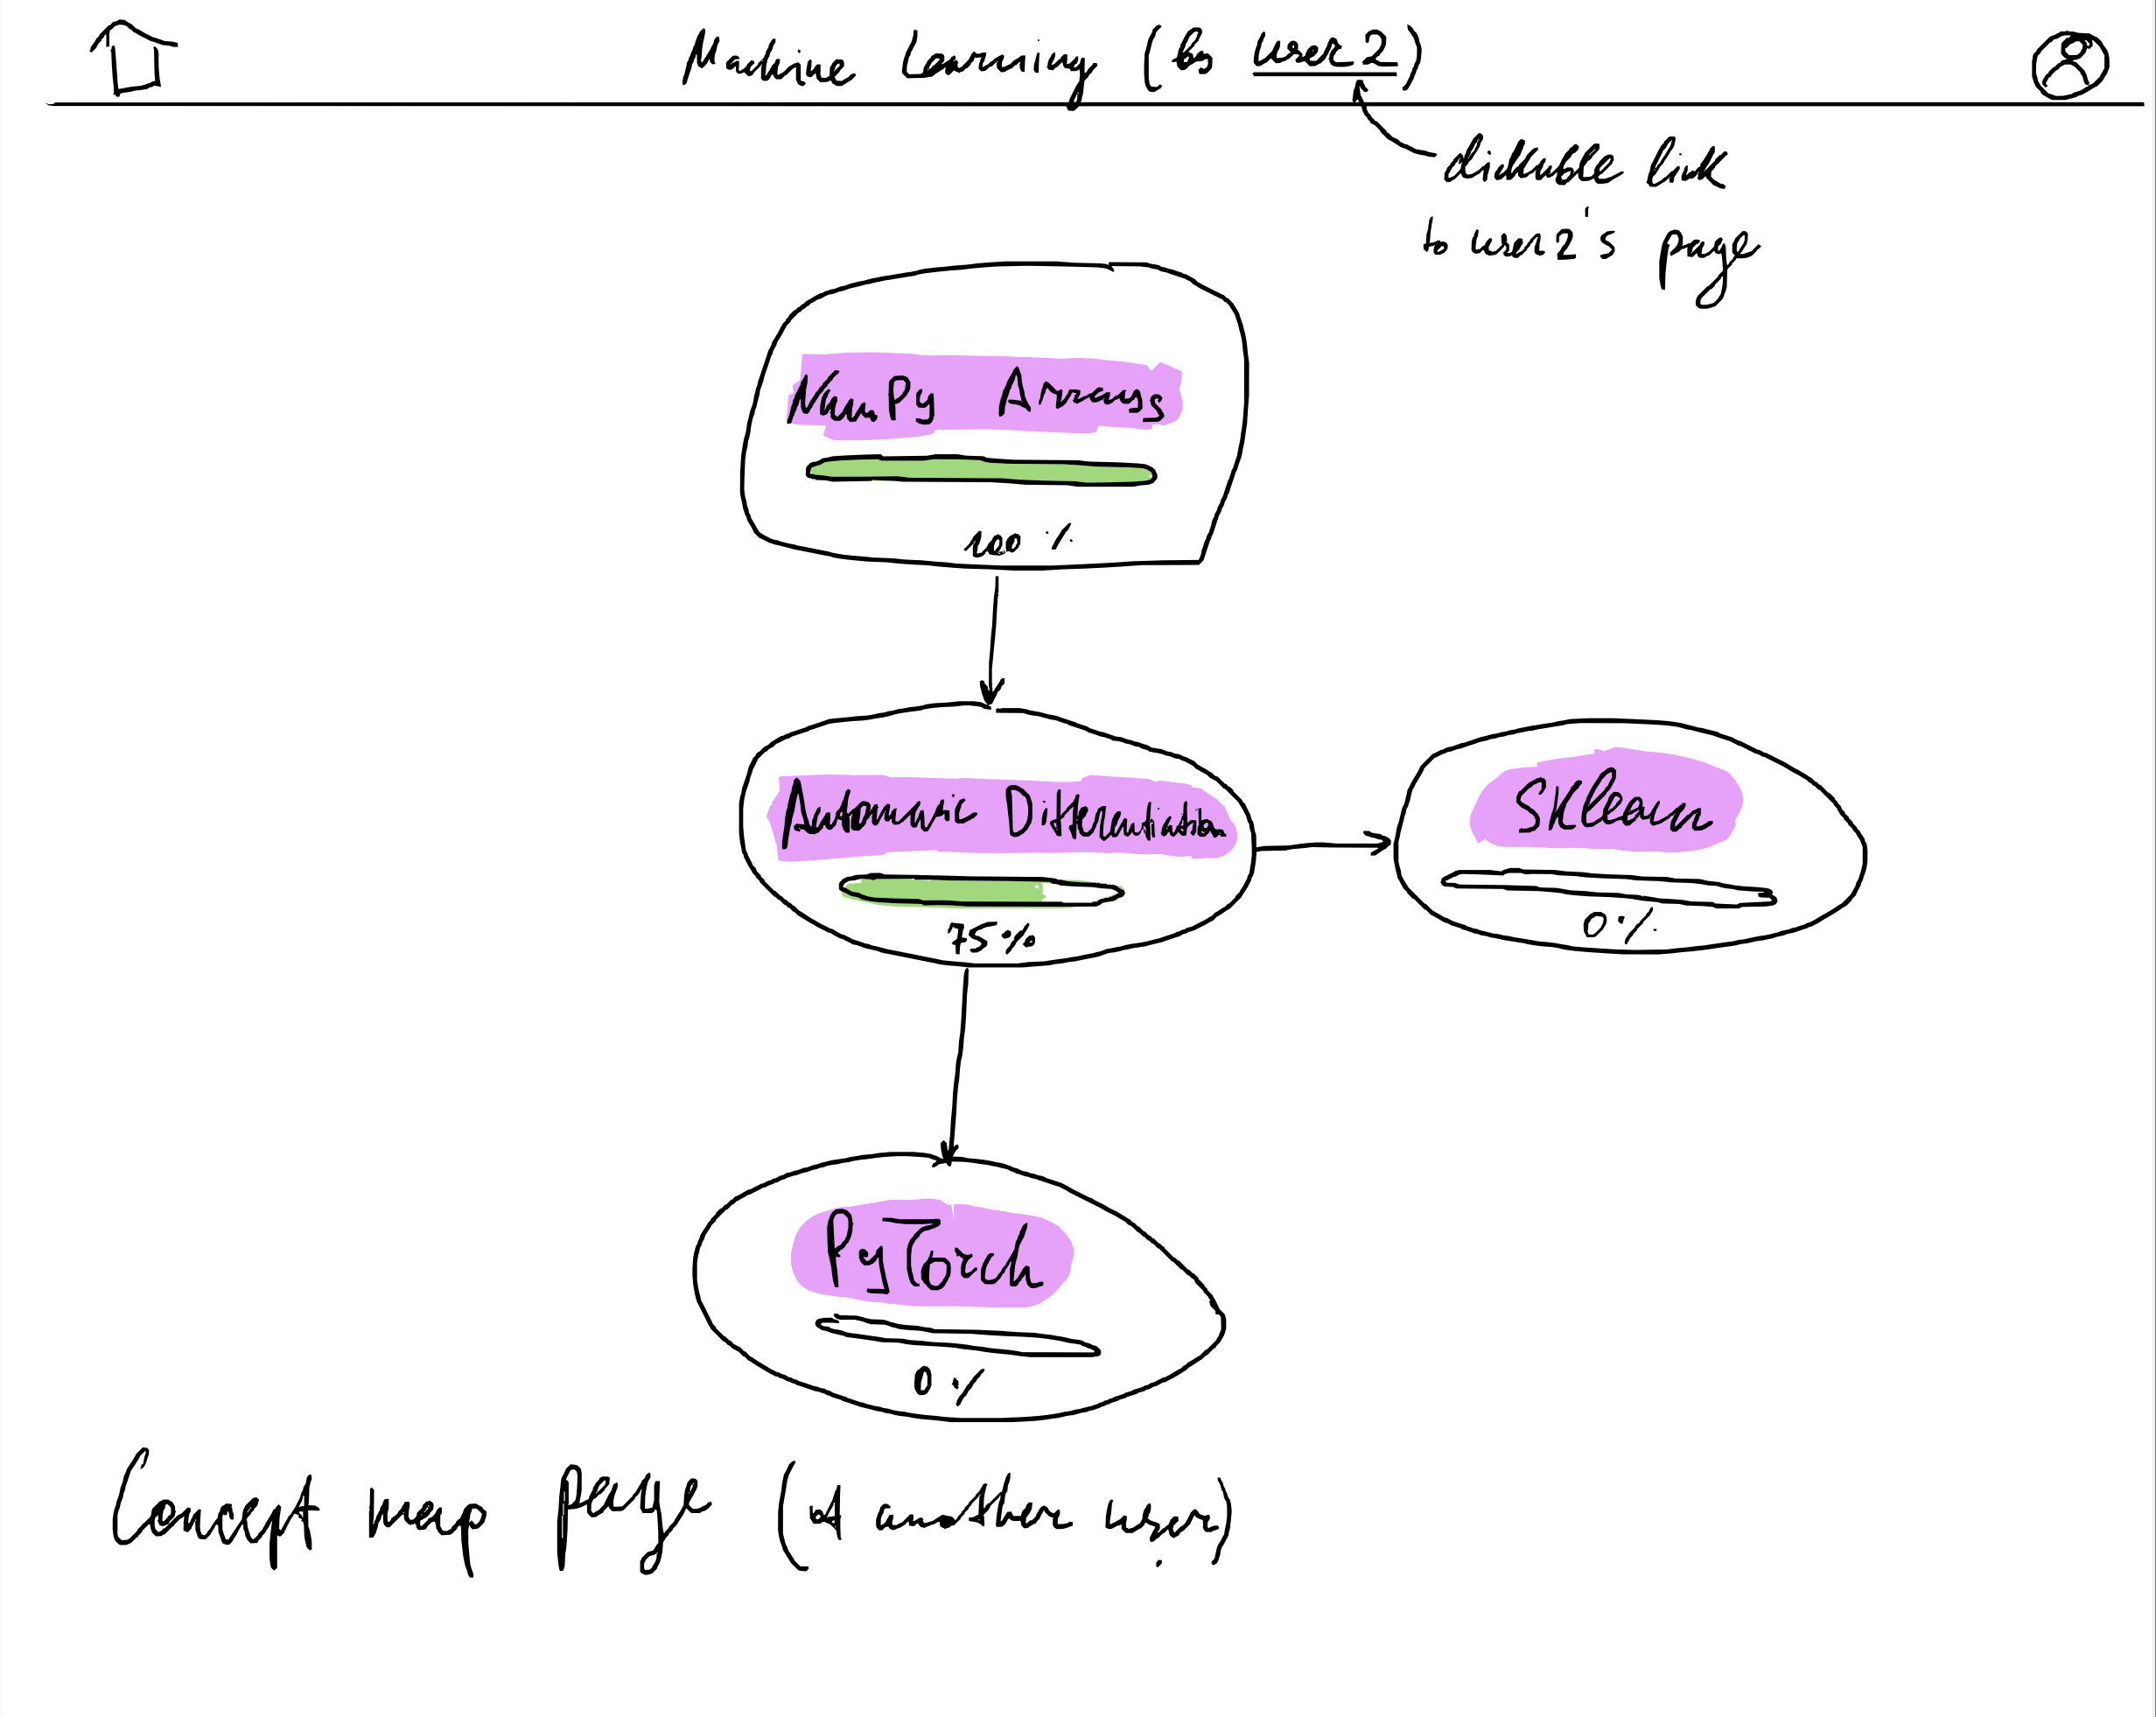 Machine Learning (by user2)
clickable link
to user2's page
NumPy Arrays
100 %
Automatic Differentiation
75%
SKLearn
0%
PyTorch
0 %
Concept map page (of another user)